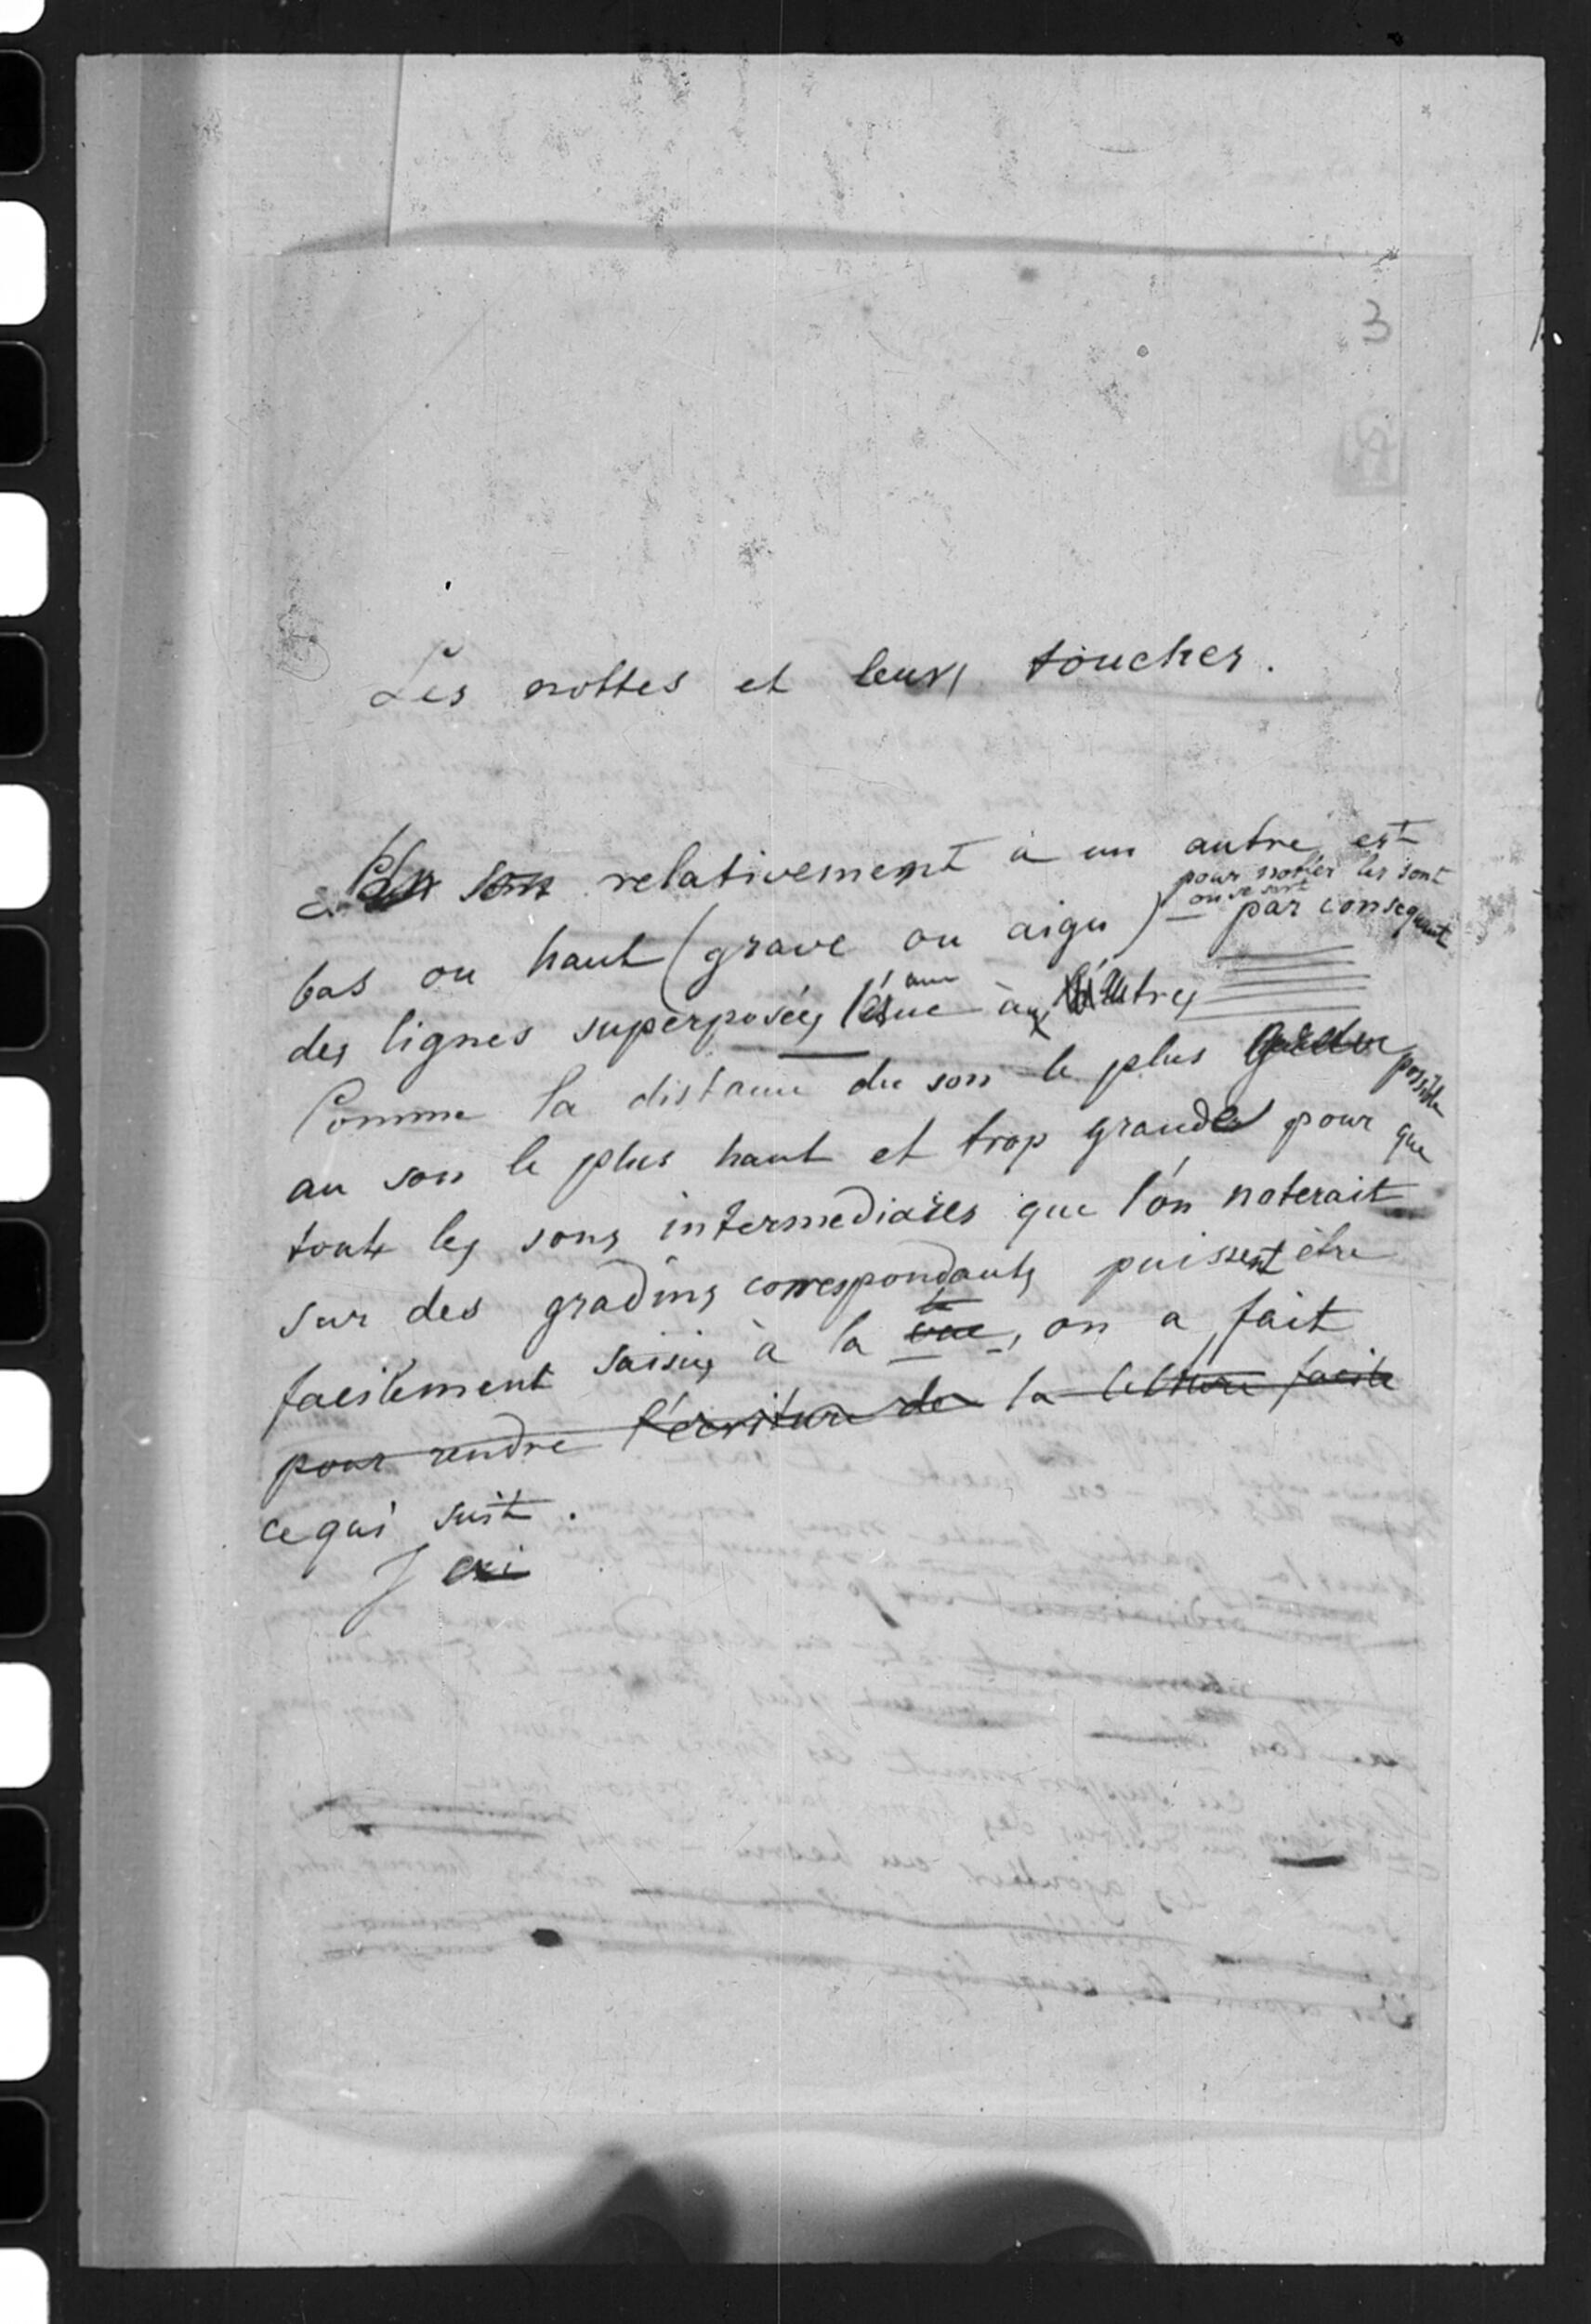 3
Les nottes et leurs touches.
Un son relativement à un autre est
pour notter les sont
on se sert
bas ou haut (grave ou aigu) par consequent
des lignes superposées les une aux autres
Comme la distance du son le plus possible
au son le plus haut et trop grande pour que
toute les sons intermediaires que l'on noterait
sur des gradins correspondants puissent être
facilement saisis à la vue, on a fait
pour rendre l'ecriture de la lecture facile
ce qui suit.